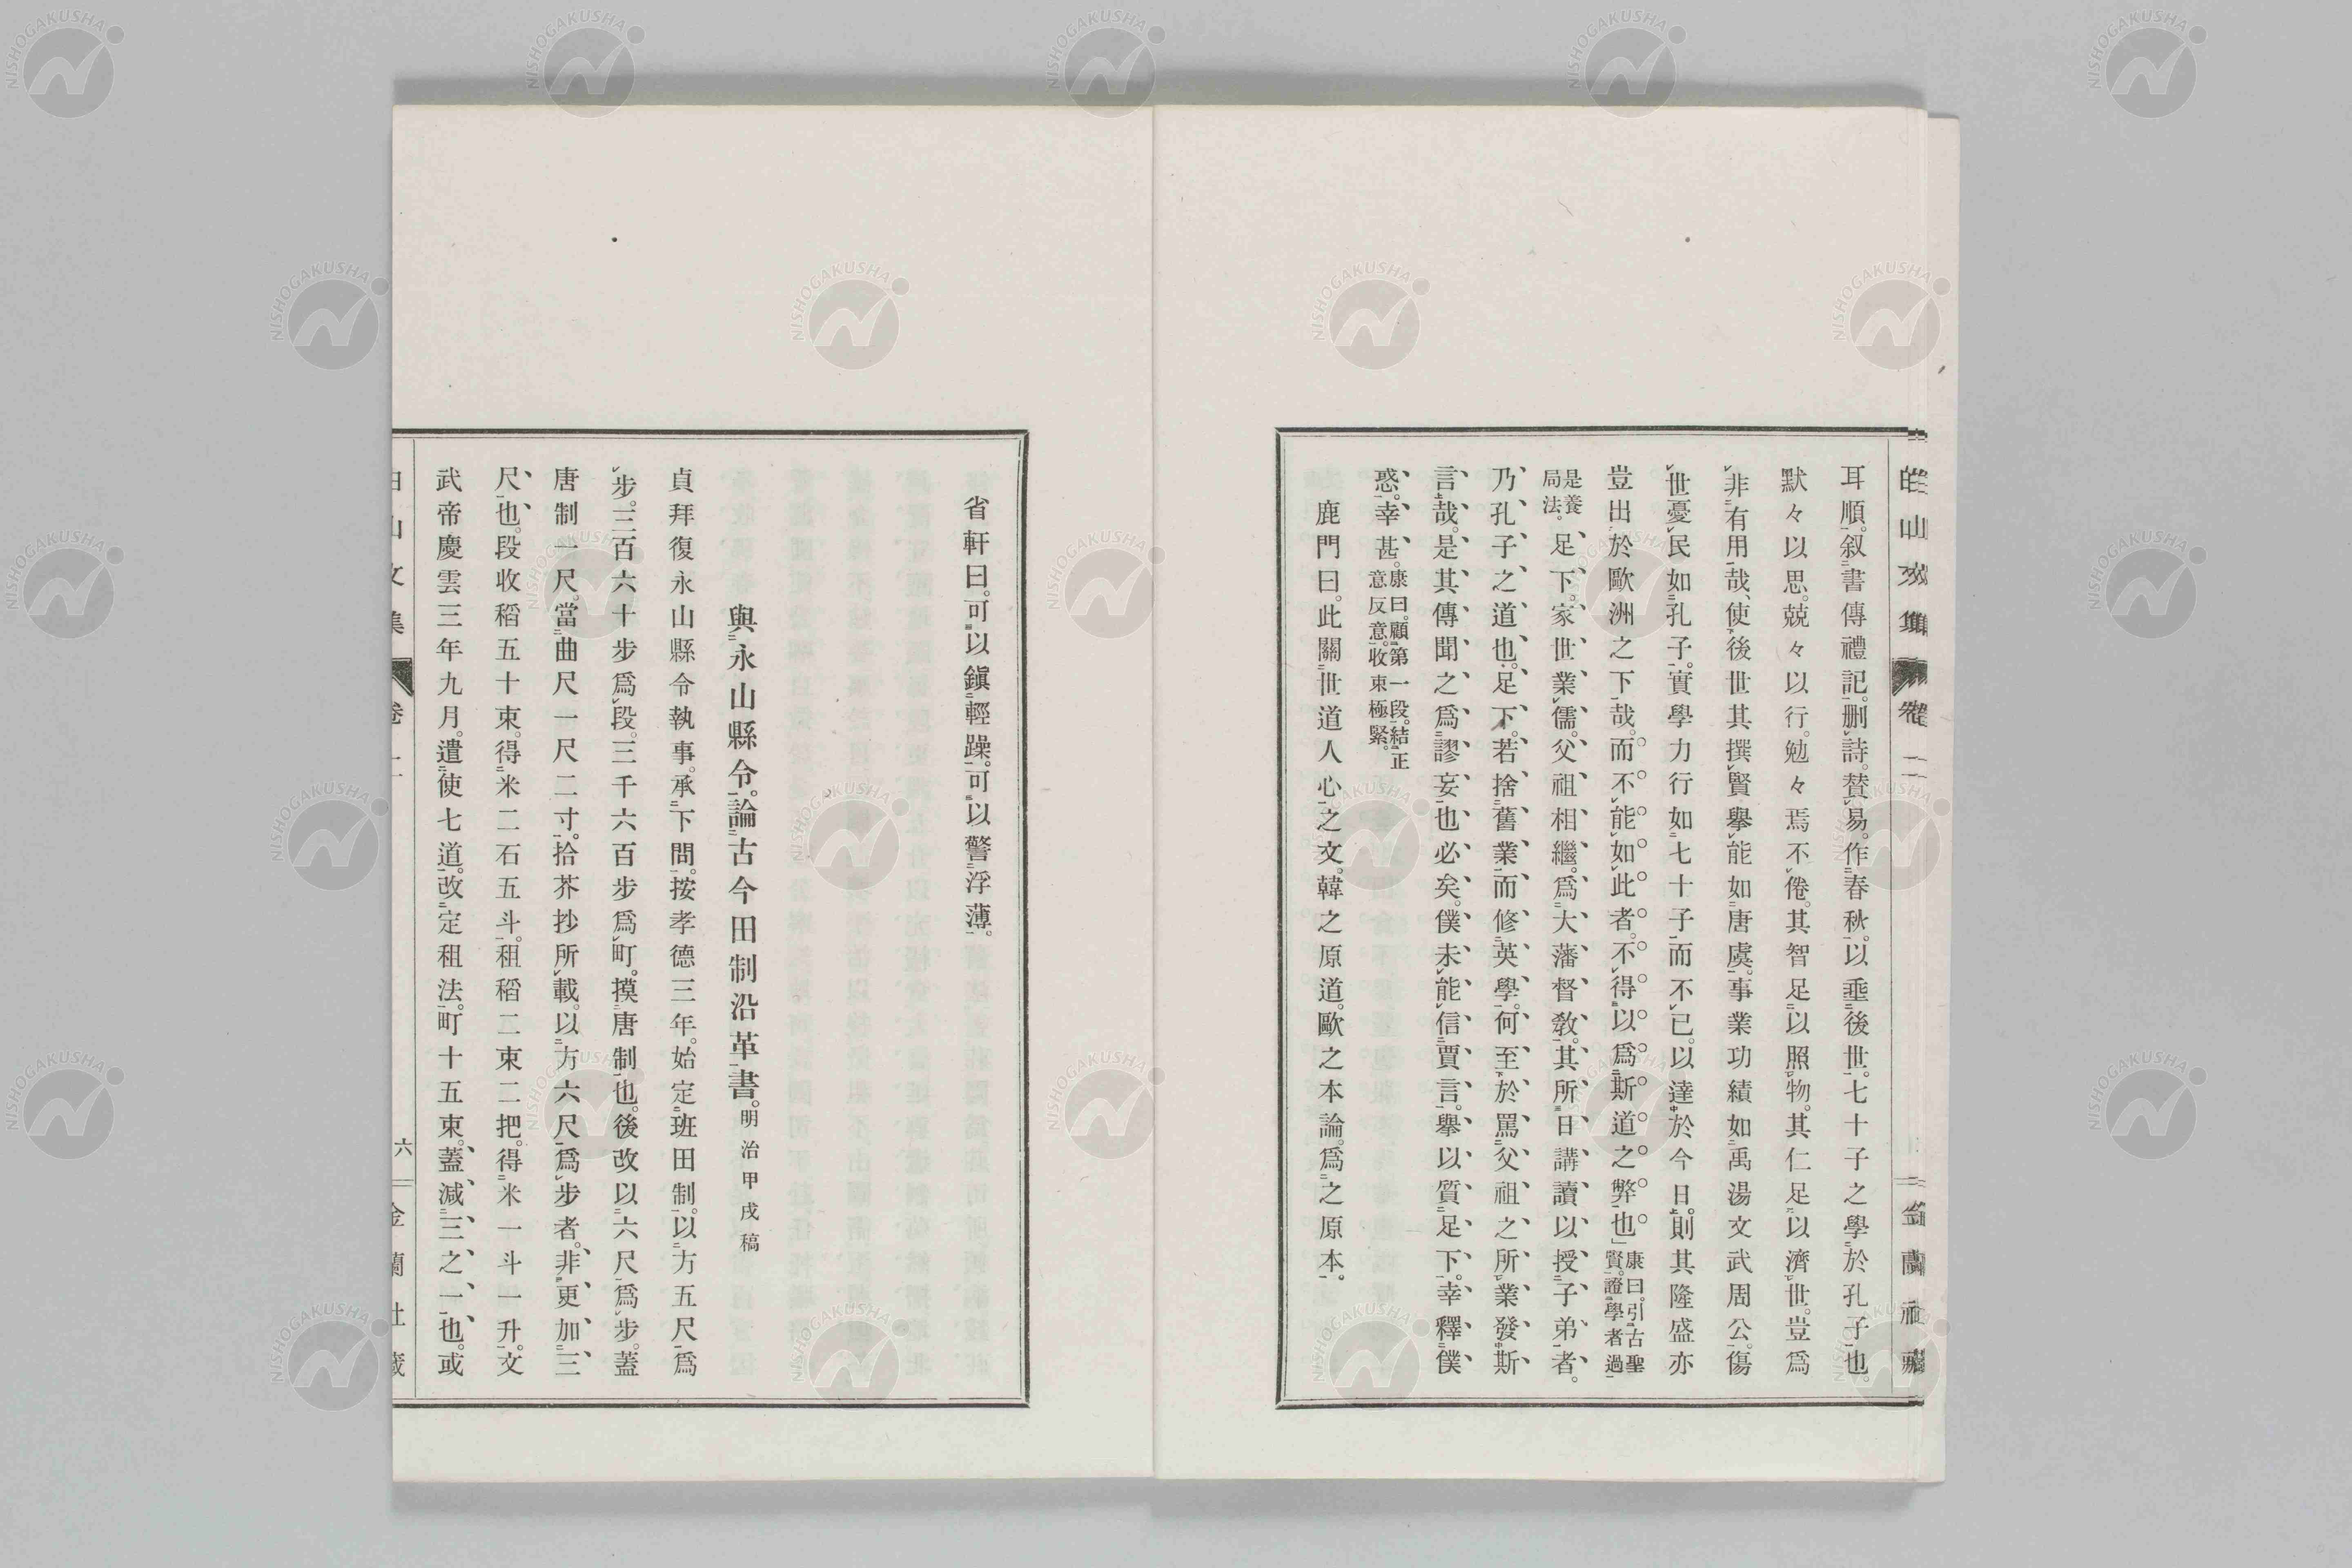 耳順。叙書傳禮記。刪詩。贊易。作春秋。以垂後世。七十子之學於孔子也。
默々以思。兢々以行。勉々焉不倦。其智足以照物。其仁足以濟世。豈爲
非有用哉、使後世其撰賢擧能如唐虞。事業功績如禹湯文武周公。傷
世憂民如孔子。實學力行如七十子而不已。以達於今日。則其隆盛亦
豈出於歐洲之下哉。而不能如此者。不得以爲斯道之弊也」康曰。引古聖賢。證學者過
是養局法。足下。家世業儒。父祖相繼。爲大藩督敎。其所日講讀以授子弟者。
乃孔子之道也。足下。若捨舊業而修英學。何至於罵父祖之所業發斯
言哉。是其傳聞之爲謬妄也必矣。僕未能信賈言。擧以質足下。幸釋僕
惑。幸甚。康曰。顧第一段。結正意反意。收束極緊。
鹿門曰。此關世道人心之文。韓之原道。歐之本論。爲之原本。
皕山文集 卷一 金蘭社藏
省軒曰。可以鎭輕躁。可以警浮薄。
與永山縣令。論古今田制沿革書。明治甲戌稿
貞拜復永山縣令執事。承下問。按孝德三年。始定班田制。以方五尺爲
步。三百六十步爲段。三千六百步爲町。摸唐制也。後改以六尺爲步。蓋
唐制一尺。當曲尺一尺二寸。拾芥抄所載。以方六尺爲步者。非更加三
尺也。段收稻五十束。得米二石五斗。租稻二束二把。得米一斗一升。文
武帝慶雲三年九月。遣使七道。改定租法。町十五束。蓋減三之一也。或
山文集 卷一 六 金蘭社藏
NISHOGAKUSHA